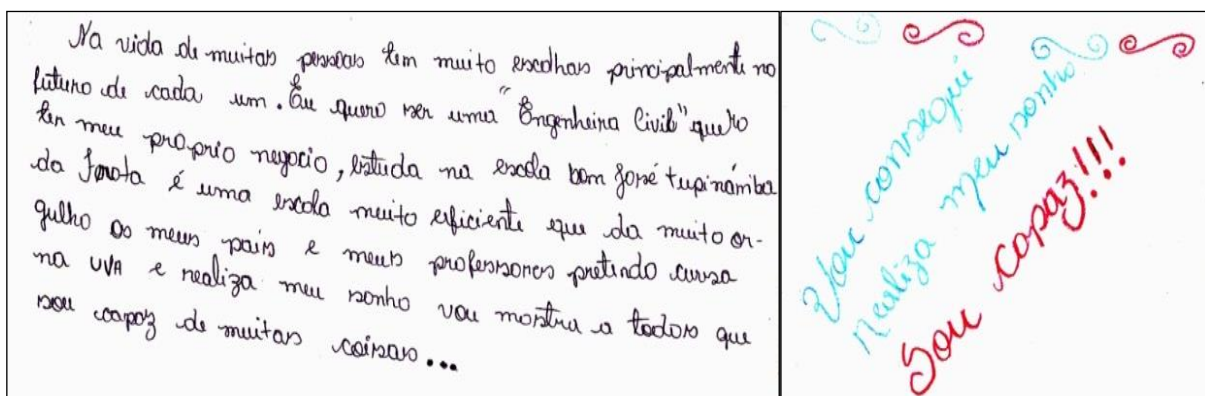 Na vida de muitas pessoas tem muito escolhas principalmente no
futuro de cada um. Eu quero ser uma "Engenheira Civil" quero
ter meu proprio negocio, estuda na escola Dom José tupinámba
da Frota é uma escola muito eficiente que da muito or-
gulho os meus pais e meus professores pretindo cursa
na UVA e realiza meu sonho vou mostra a todos que
sou capaz de muitas coisas...
Vou conseguí
realiza meu sonho
Sou capaz!!!